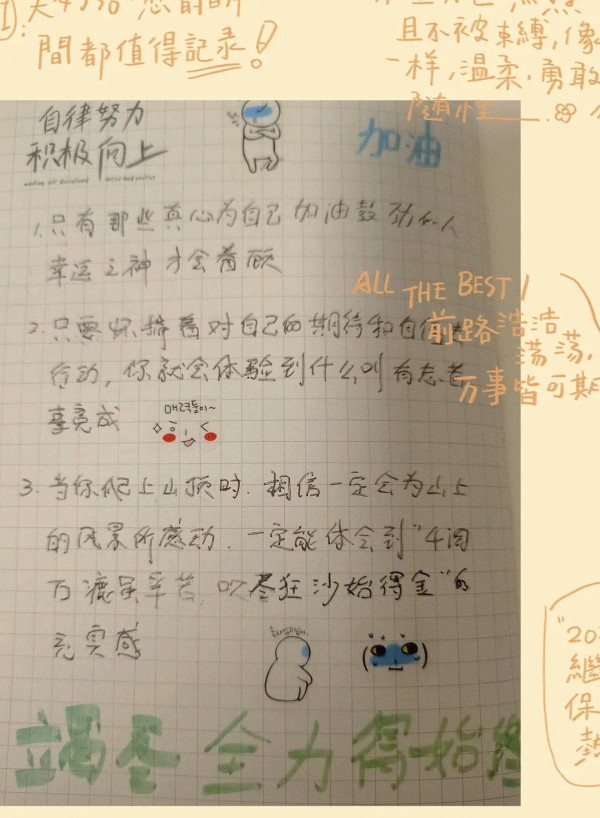 間都值得記录!
且不被束縛,像
一样,温柔,勇敢
随性
自律努力
积极向上
加油
1.只有那些真心为自己加油鼓劲的人
幸运之神才会眷顾
ALL THE BEST!
前路浩浩
荡荡,
万事皆可期
2.只要怀揣着对自己的期待和自信去
行动,你就会体验到什么叫有志者
事竟成
매력둥이~
3.当你爬上山顶时.相信一定会为山上
的风景所感动.一定能体会到"千淘
万漉虽辛苦,吹尽狂沙始得金"的
充实感
"20
繼
保
熱
竭尽全力得始终